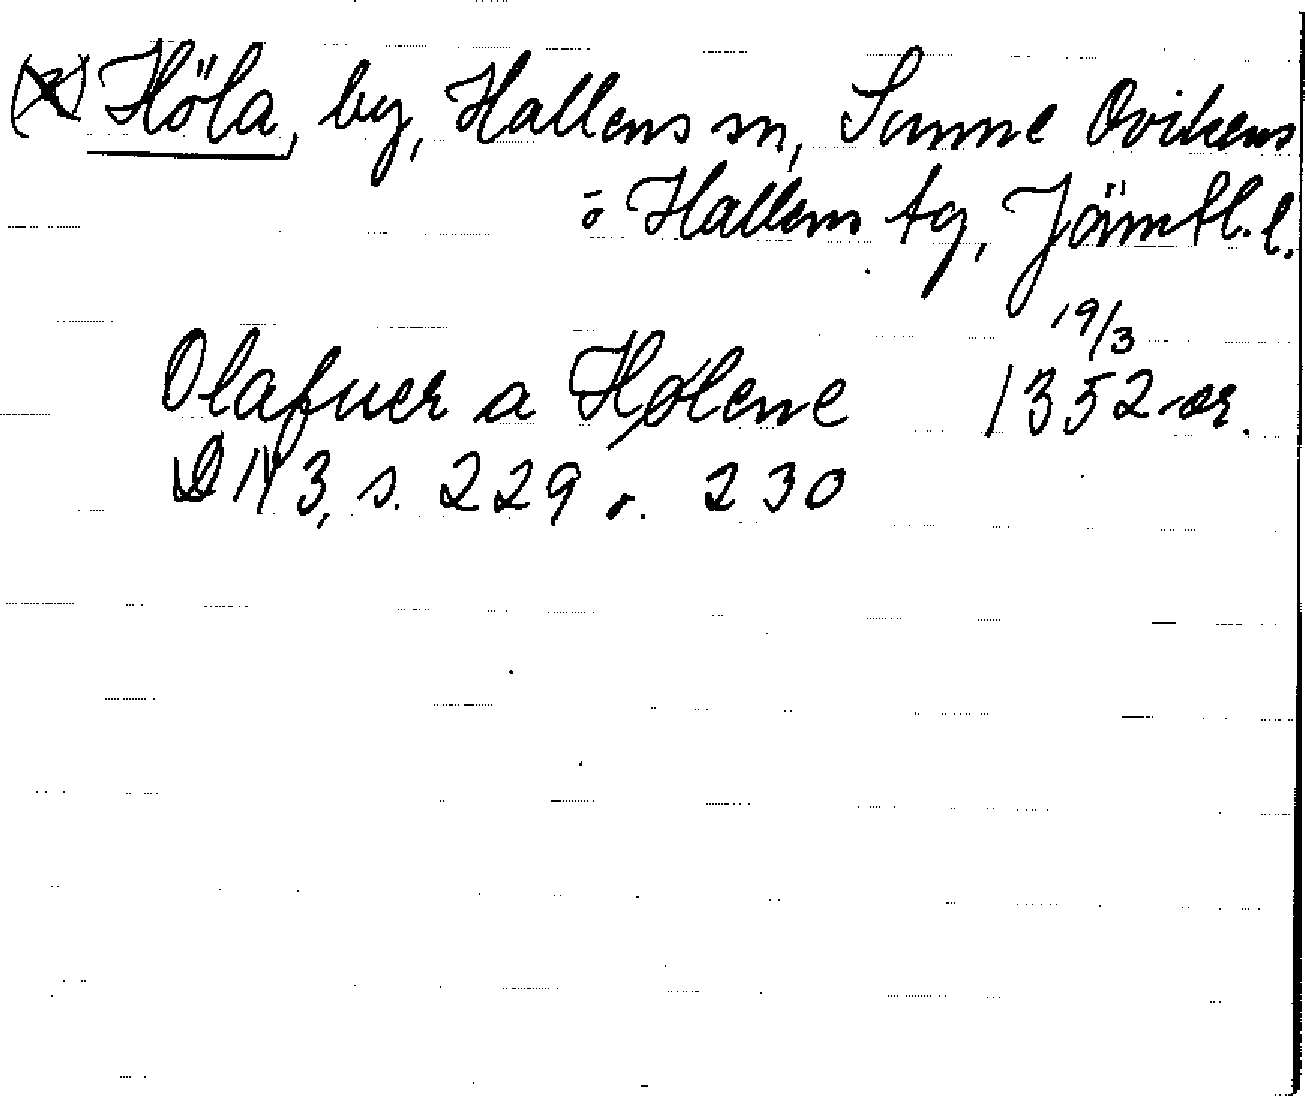 (x) Höla, by, Hallens sn, Sunne Ovikens
o Hallens tg, Jämtl. l.
19/3
Olafuer a Hølene 1352 or.
DN 3, s. 229 o. 230